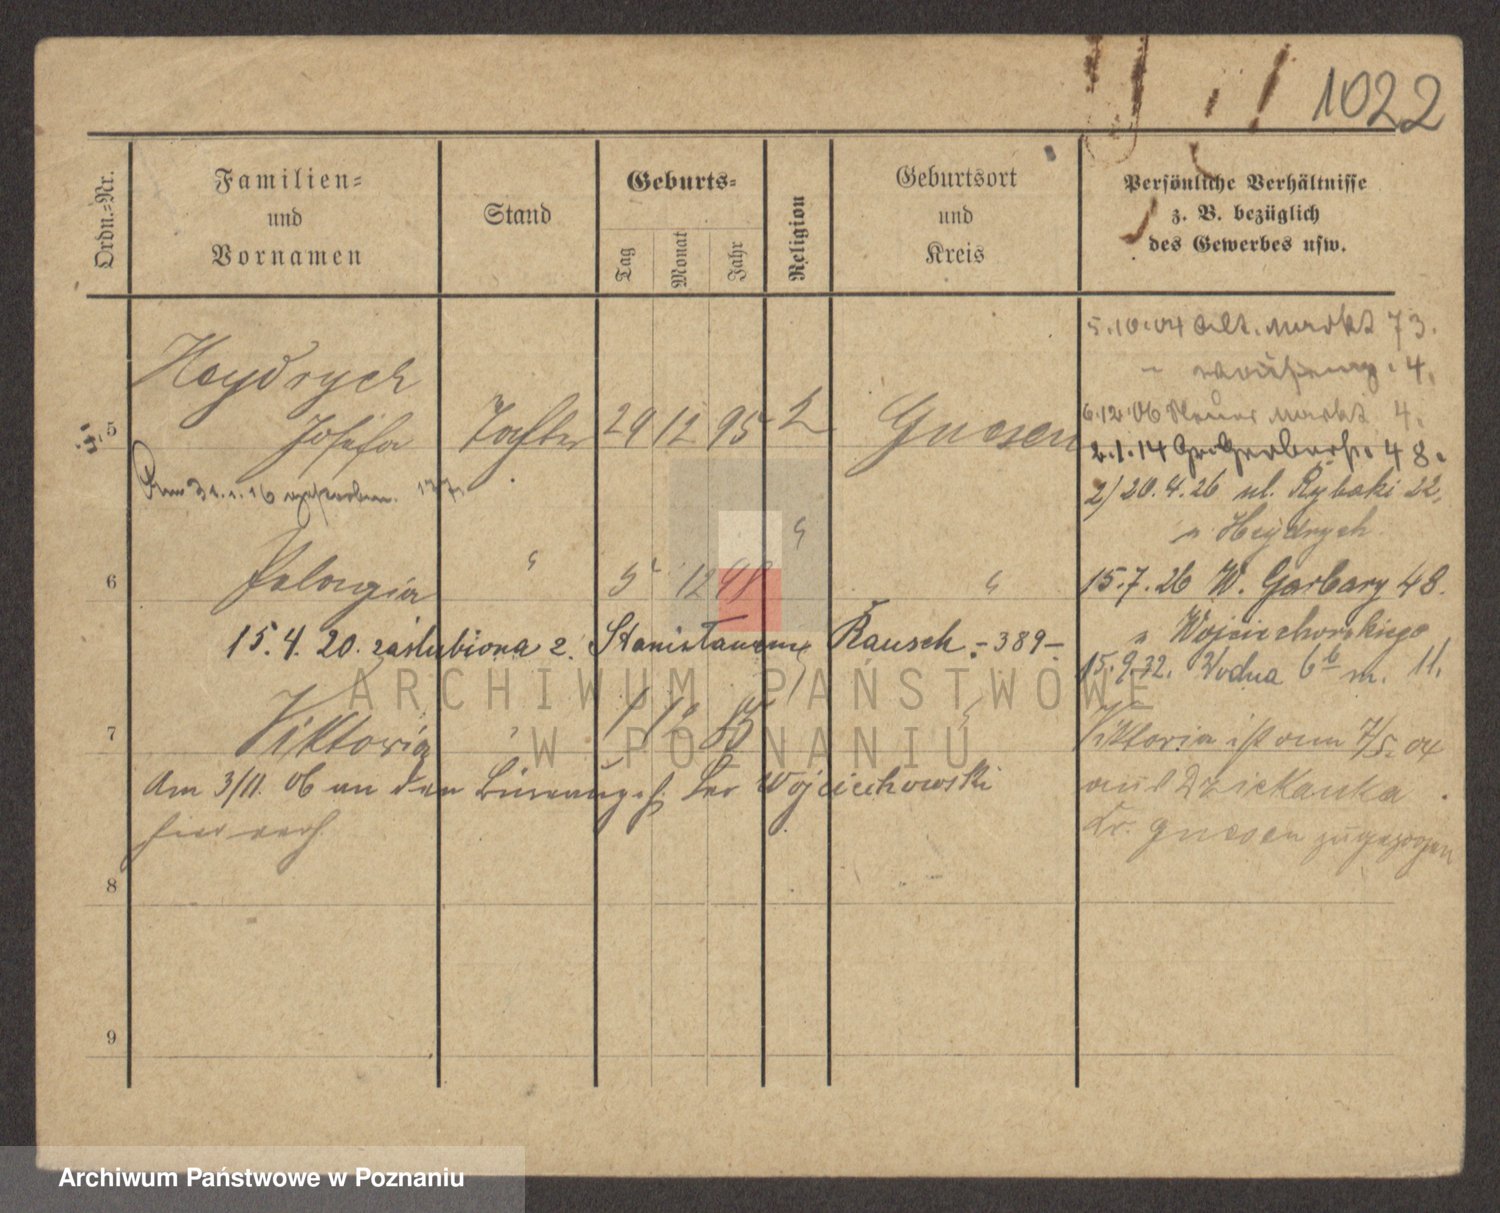 1022
Ordn.-Nr.
Familien-
und
Vornamen
Stand
Geburts-
Tag
Monat
Jahr
Religion
Geburtsort
und
Kreis
Persönliche Verhältnisse
z. B. bezüglich
des Gewerbes usw.
Heydrych
5 Josefa Tochter 29 12 95 Gnesen
31.1.16
6 Pelagia " 5 12 98 " "
15.4.20. zaślubiona z. Stanisławem Rausch. - 389 -
7 Viktoria " 1 "
Am 3/11. 06 an den Wojciechowski
hier verh.
8
9
5.10.04 Alt. Markt 73.
4.
6.12.06 Neuer Markt 4.
2.1.14 Gr. Gerberstr. 48.
2) 20.4.26 ul. Rybaki 22,
u Heydrych
15.7.26 W. Garbary 48.
u Wojciechowskiego
15.9.32. Wodna 6b m. 11.
Viktoria ist am 7/5. 04
aus Dziekanka
Kr. Gnesen zugezogen
ARCHIWUM PAŃSTWOWE
W POZNANIU
Archiwum Państwowe w Poznaniu